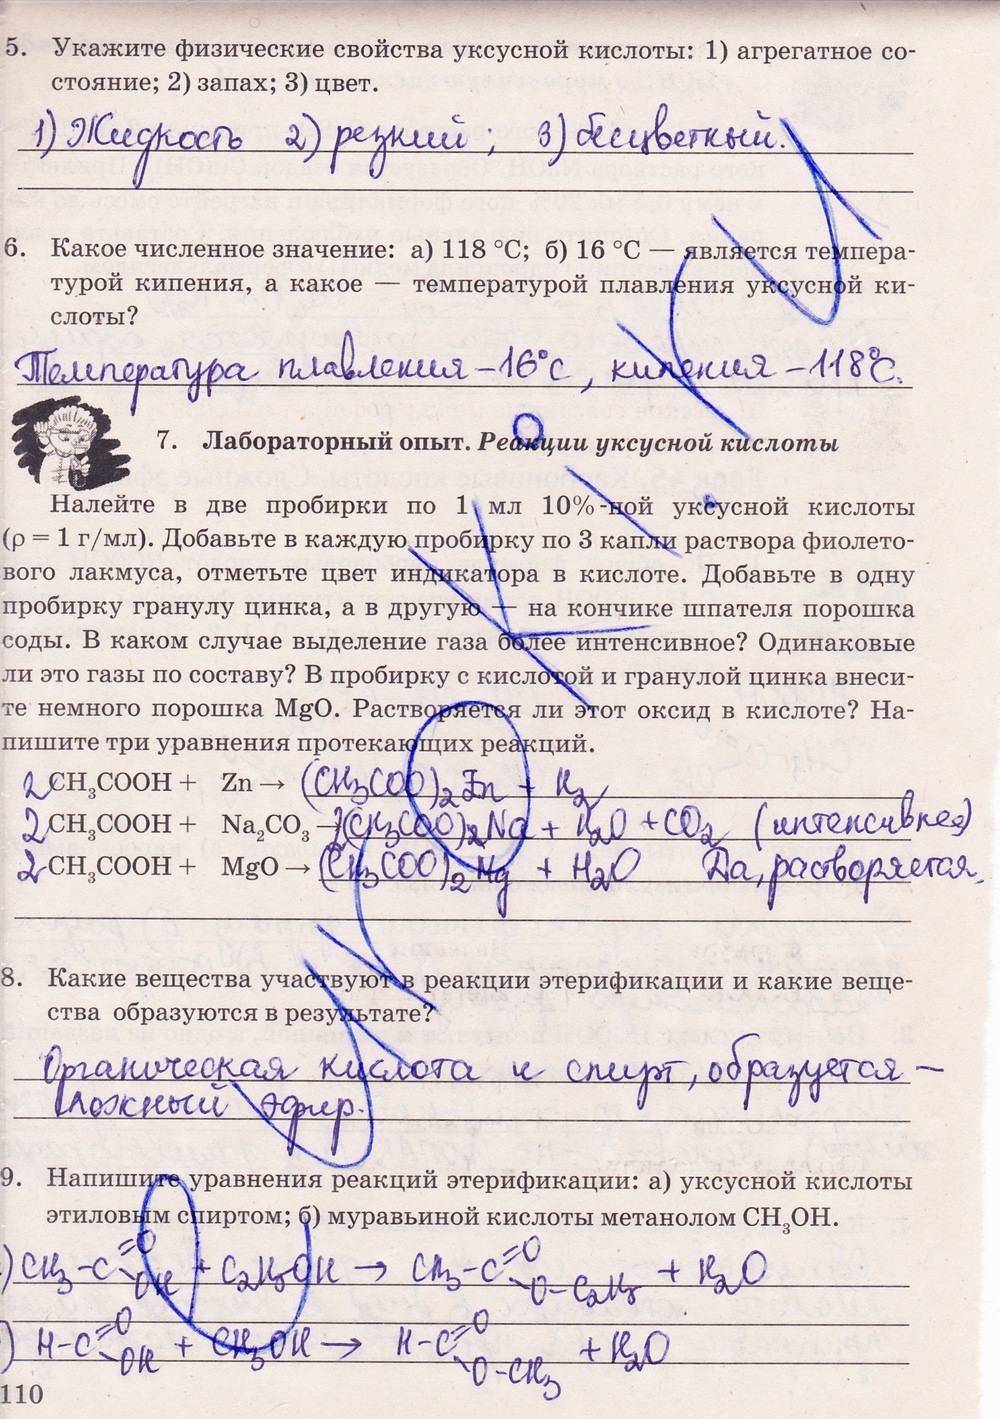 5. Укажите физические свойства уксусной кислоты: 1) агрегатное со-
стояние; 2) запах; 3) цвет.
1) Жидкость 2) резкий, 3) бесцветный.
6. Какое численное значение: а) 118 °С; б) 16 °С — является темпера-
турой кипения, а какое — температурой плавления уксусной ки-
слоты?
Температура плавления – 16°С, кипения – 118°С.
7. Лабораторный опыт. Реакции уксусной кислоты
Налейте в две пробирки по 1 мл 10%-ной уксусной кислоты
(ρ = 1 г/мл). Добавьте в каждую пробирку по 3 капли раствора фиолето-
вого лакмуса, отметьте цвет индикатора в кислоте. Добавьте в одну
пробирку гранулу цинка, а в другую — на кончике шпателя порошка
соды. В каком случае выделение газа более интенсивное? Одинаковые
ли это газы по составу? В пробирку с кислотой и гранулой цинка внеси-
те немного порошка MgO. Растворяется ли этот оксид в кислоте? На-
пишите три уравнения протекающих реакций.
2CH₃COOH + Zn → (CH₃COO)₂Zn + H₂
2CH₃COOH + Na₂CO₃ → (CH₃COO)₂Na + H₂O + CO₂ (интенсивнее)
2CH₃COOH + MgO → (CH₃COO)₂Mg + H₂O Да, растворяется.
8. Какие вещества участвуют в реакции этерификации и какие веще-
ства образуются в результате?
Органическая кислота и спирт, образуется –
сложный эфир.
9. Напишите уравнения реакций этерификации: а) уксусной кислоты
этиловым спиртом; б) муравьиной кислоты метанолом CH₃OH.
) CH₃–C=O OH + C₂H₅OH → CH₃–C=O O–C₂H₅ + H₂O
) H–C=O OH + CH₃OH → H–C=O O–CH₃ + H₂O
110